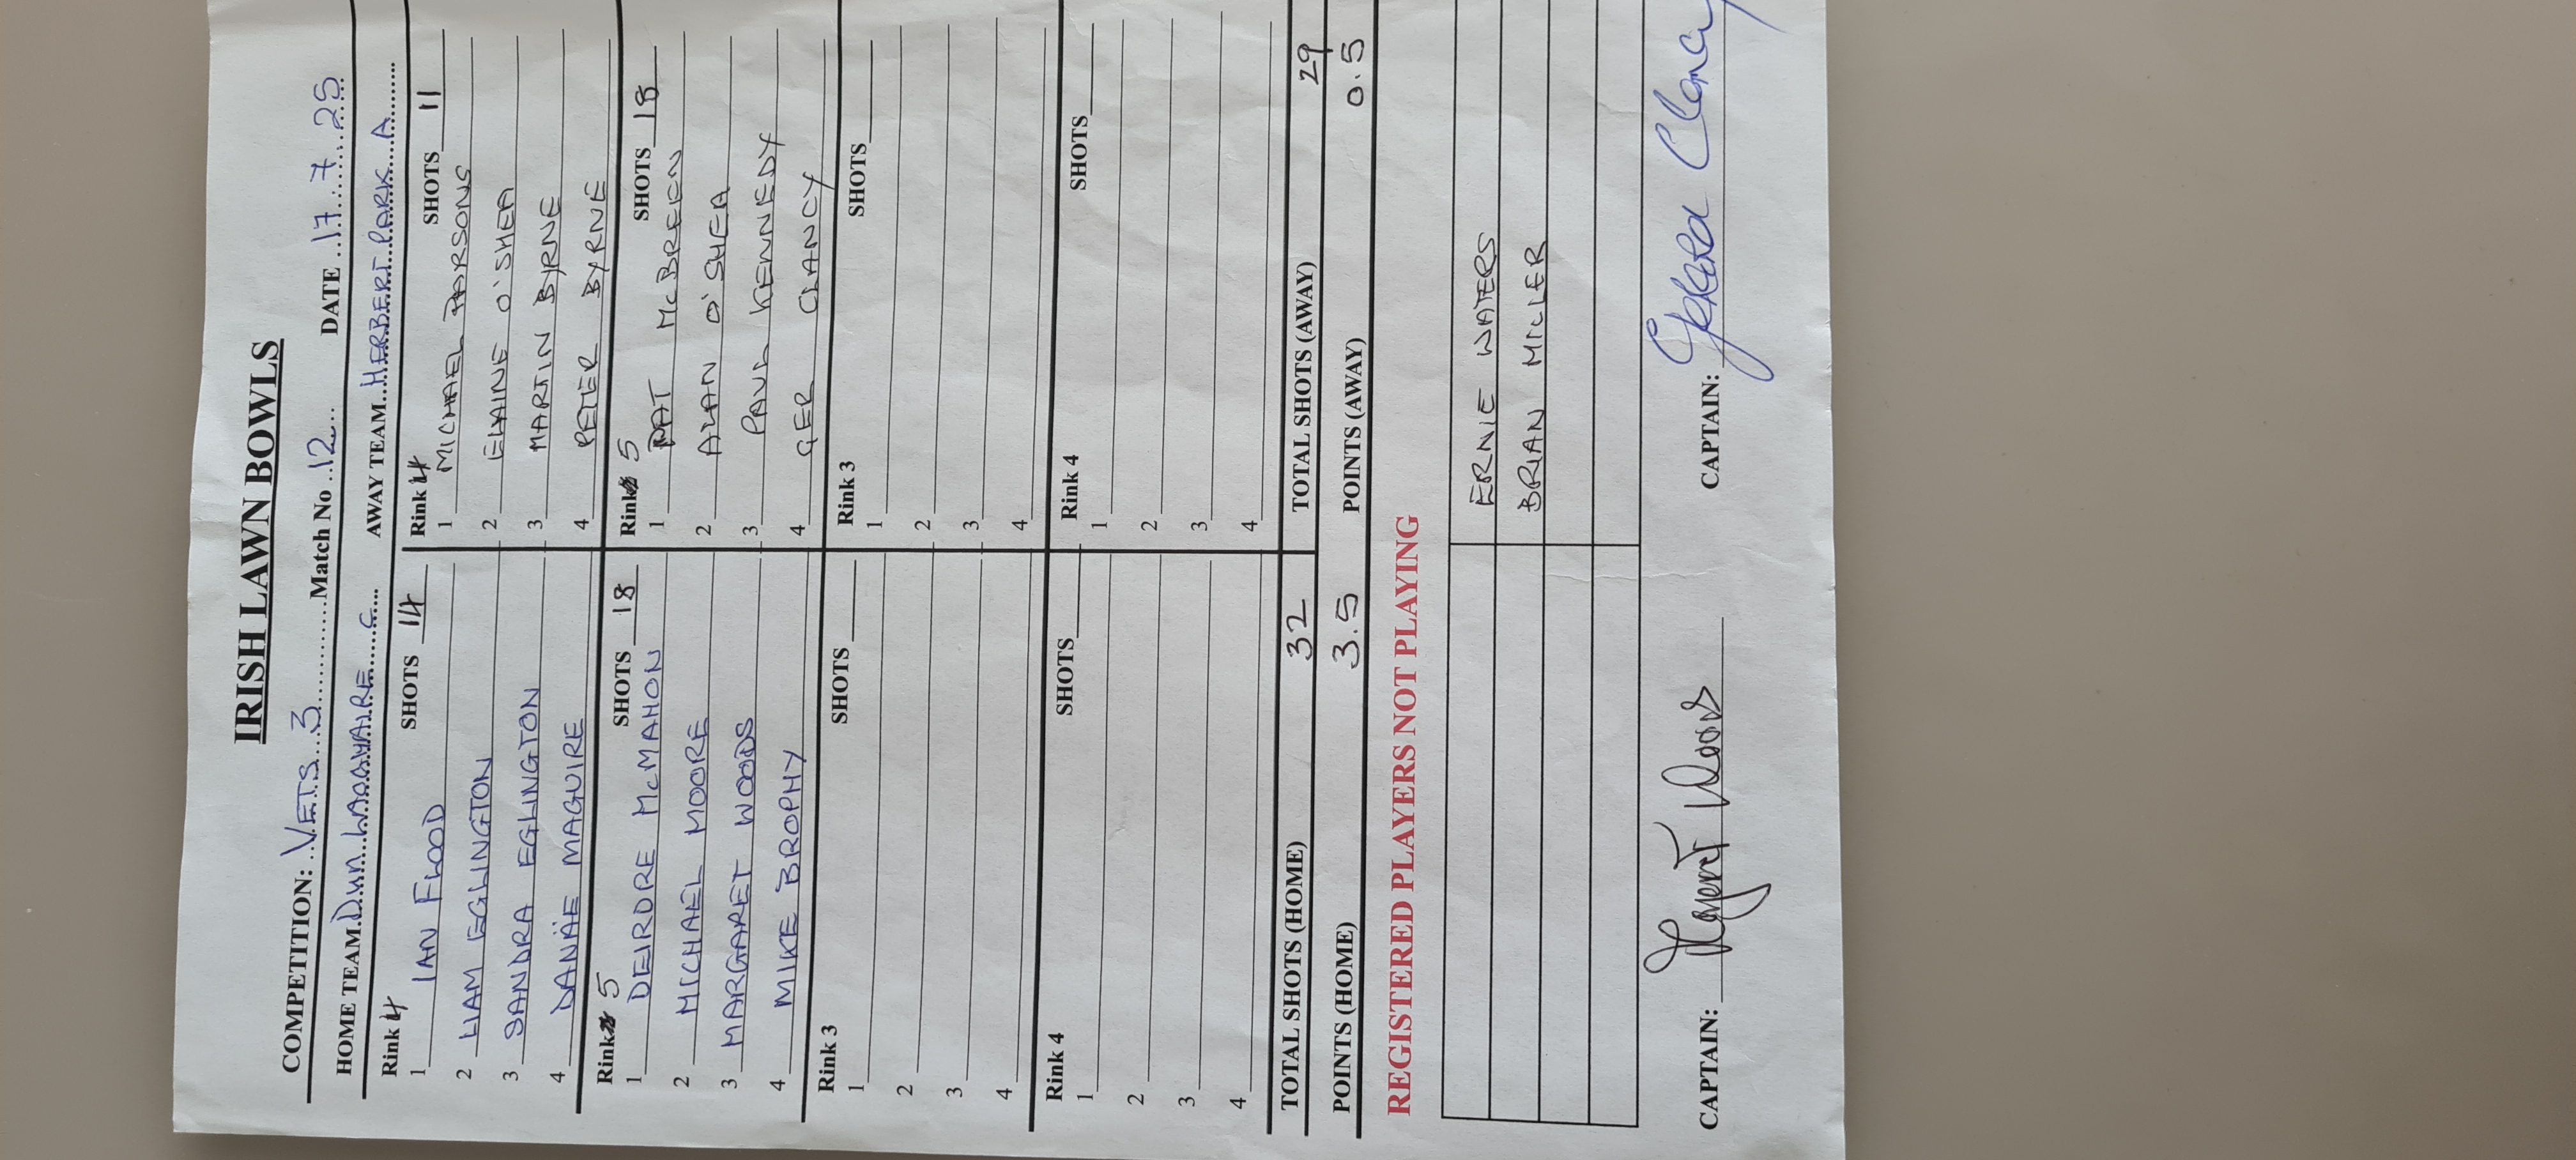 IRISH LAWN BOWLS
COMPETITION: VETS 3 Match No 12 DATE 17.7.25
HOME TEAM Dun Laoghaire C AWAY TEAM HERBERT PARK A
Rink 4 SHOTS 14 Rink 4 SHOTS 11
1 IAN FLOOD 1 MICHAEL PARSONS
2 LIAM EGLINGTON 2 ELAINE O'SHEA
3 SANDRA EGLINGTON 3 MARTIN BYRNE
4 DANÄE MAGUIRE 4 PETER BYRNE
Rink 5 SHOTS 18 Rink 5 SHOTS 18
1 DEIRDRE McMAHON 1 PAT McBREEN
2 MICHAEL MOORE 2 ALAN O'SHEA
3 MARGARET WOODS 3 PAUL KENNEDY
4 MIKE BROPHY 4 GER CLANCY
Rink 3 SHOTS Rink 3 SHOTS
1 1
2 2
3 3
4 4
Rink 4 SHOTS Rink 4 SHOTS
1 1
2 2
3 3
4 4
TOTAL SHOTS (HOME) 32 TOTAL SHOTS (AWAY) 29
POINTS (HOME) 3.5 POINTS (AWAY) 0.5
REGISTERED PLAYERS NOT PLAYING
ERNIE WATERS
BRIAN MILLER
CAPTAIN: Margaret Woods CAPTAIN: